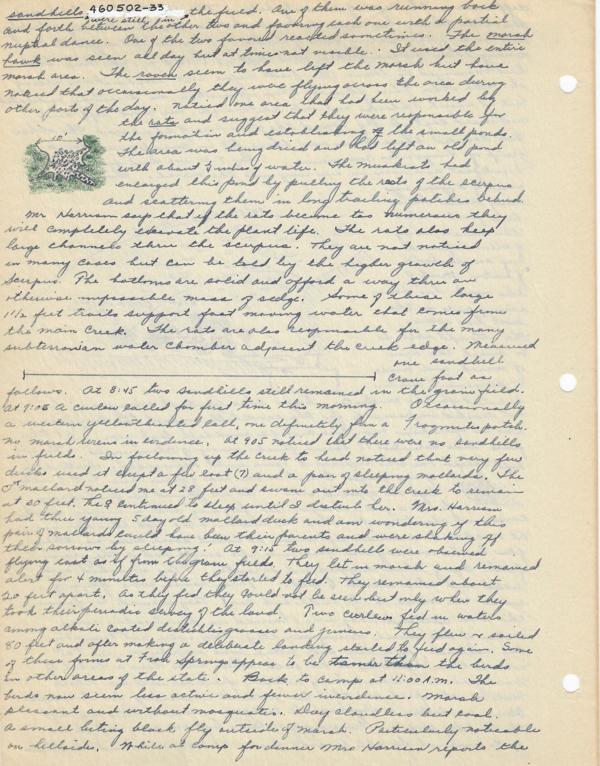 460502-33
sandhills "were still in" the field. One of them was running back
and forth between the other two and favoring each one with a partial
nuptial dance. One of the two favored reacted sometimes. The marsh
hawk was seen all day but at times not visible. It used the entire
marsh area. The raven seem to have left the marsh but have
noticed that occassionally they were flying across the area during
other parts of the day. Noticed one area that had been worked by
the rats and suggest that they were responsible for
the formation and establishing of the small ponds.
10'
The area was being dried and had left an old pond
with about 3 inches of water. The muskrats had
enlarged this pond by pulling the roots of the scirpus
and scattering them in long trailing patches behind.
Mr Harrison says that if the rats become too numerous they
will completely excavate the plant life. The rats also keep
large channels thru the scirpus. They are not noticed
in many cases but can be told by the higher growth of
Scirpus. The bottoms are solid and afford a way thru an
otherwise impassible mass of sedge. Some of these large
1 1/2 feet trails support fast moving water that comes from
the main Creek. The rats are also responsible for the many
subterranian water chamber adjacent the creek edge. Measured
one sandhill
crane foot as
follows. At 8:45 two sandhills still remained in the grain field.
At 9:05 A curlew called for first time this morning. Occassionally
a western yellowthroated call, one definitely from a Fragmites patch.
No marsh wrens in evidence. At 905 noticed that there were no sandhills
in fields. In following up the creek to head noticed that very few
ducks used it except a few coot (7) and a pair of sleeping mallards. The
♂ mallard noticed me at 28 feet and swam out into the creek to remain
at 50 feet. The ♀ continued to sleep until I disturb her. Mrs. Harrison
had three young 5 day old mallard duck and am wondering if this
pair of mallards could have been their parents and were shaking off
their sorrows by sleeping. At 9:15 two sandhills were observed
flying east as if from the grain fields. They let in marsh and remained
alert for 4 minutes before they started to feed. They remained about
20 feet apart. As they fed they could not be seen but only when they
took their periodic survey of the land. Two curlews fed in waters
among alkali coated distichlis grasses and juncus. They flew & sailed
80 feet and after making a deliberate landing started to feed again. Some
of these forms at Fish Springs appear to be tamer than the birds
in other areas of the state. Back to camp at 11:00 A.M. The
birds now seem less active and fewer in evidence. Marsh
pleasant and without mosquitos. Day cloudless but cool.
A small biting black fly outside of marsh. Particularly noticeable
on hillside. While at camp for dinner Mrs Harrison reports the